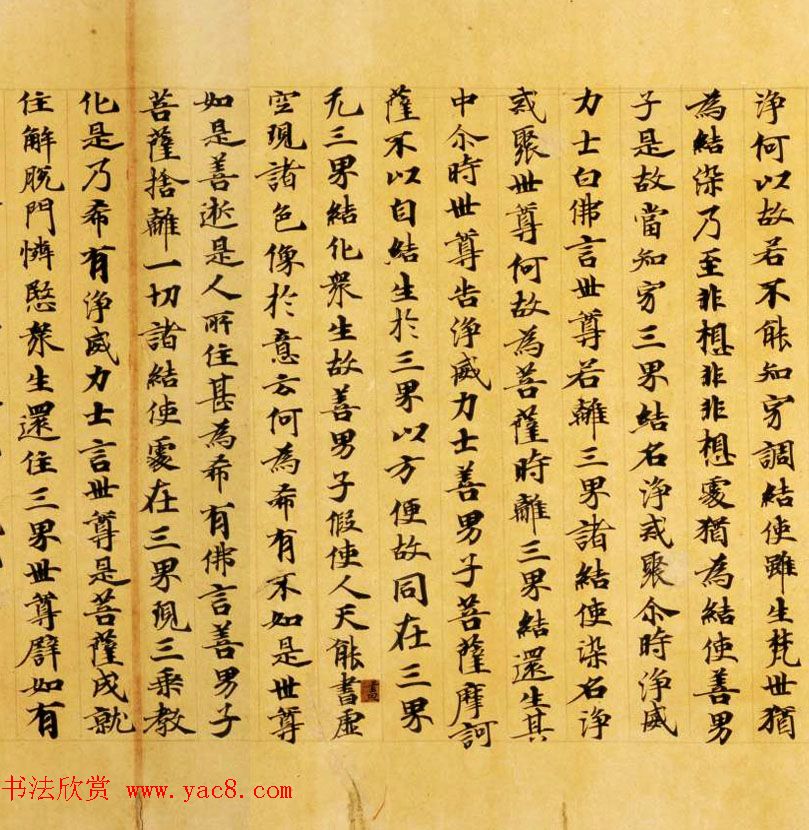 淨何以故若不能知調結使雖生梵世猶
為結染乃至非想非非想處猶為結使善男
子是故當知三界結名淨戒聚尒時淨威
力士白佛言世尊若離三界諸結使染名淨
戒聚世尊何故為菩薩時離三界結還生其
中尒時世尊告淨威力士善男子菩薩摩訶
薩不以自結生於三界以方便故同在三界
无三界結化衆生故善男子假使人天能書虛
畫
空現諸色像於意云何為希有不如是世尊
如是善逝是人所住甚為希有佛言善男子
菩薩捨離一切諸結使處在三界現三乘教
化是乃希有淨威力士言世尊是菩薩成就
住解脫門憐愍衆生還住三界世尊譬如有
书法欣赏 www.yac8.com